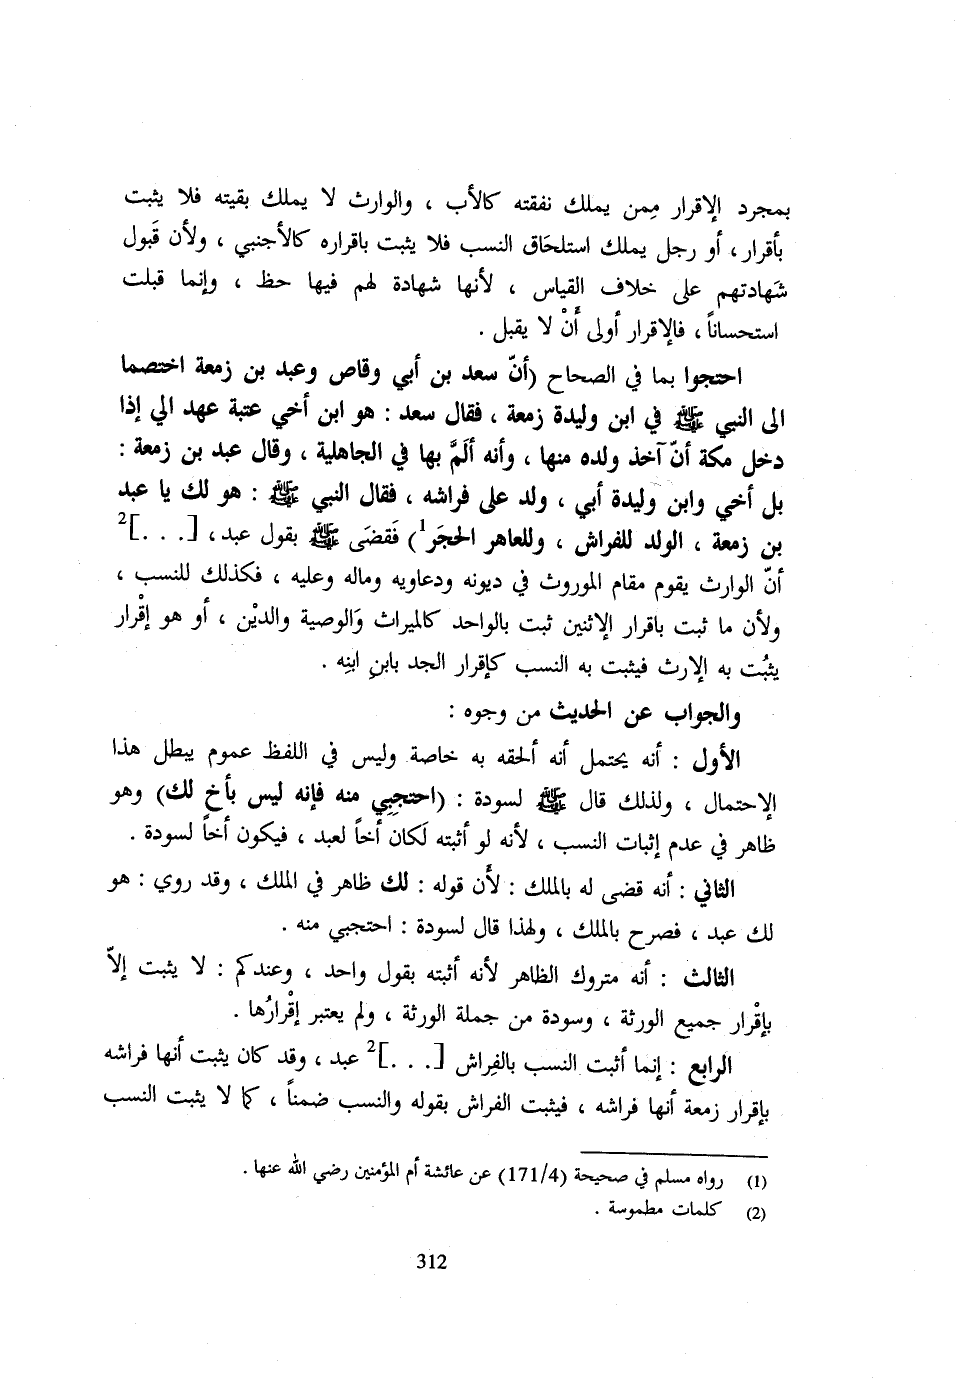 بمجرد الإقرار مِمن يملك نفقته كالأب ، والوارث لا يملك بقيته فلا يثبت
بأقرار ، أو رجل يملك استلحَاق النسب فلا يثبت باقراره كالأجنبي ، ولأن قَبول
شَهادتهم على خلاف القياس ، لأنها شهادة لهم فيها حظ ، وإنما قبلت
استحساناً ، فالإقرار أولى أَنْ لا يقبل .
احتجوا بما في الصحاح (أنّ سعد بن أبي وقاص وعبد بن زمعة اختصما
الى النبي ﷺ في ابن وليدة زمعة ، فقال سعد : هو ابن أخي عتبة عهد الي إذا
دخل مكة أنّ آخذ ولده منها ، وأنه ألَمَّ بها في الجاهلية ، وقال عبد بن زمعة :
بل أخي وابن وليدة أبي ، ولد على فراشه ، فقال النبي ﷺ : هو لك يا عبد
بن زمعة ، الولد للفراش ، وللعاهر الحجَر1) فَقضَى ﷺ بقول عبد ، [. . .]2
أنّ الوارث يقوم مقام الموروث في ديونه ودعاويه وماله وعليه ، فكذلك للنسب ،
ولأن ما ثبت باقرار الإثنين ثبت بالواحد كالميراث وَالوصية والديْن ، أو هو إقْرار
يثبُت به الإرث فيثبت به النسب كإقرار الجد بابنِ ابنِه .
والجواب عن الحديث من وجوه :
الأول : أنه يحتمل أنه ألحقه به خاصة وليس في اللفظ عموم يبطل هذا
الإحتمال ، ولذلك قال ﷺ لسودة : (احتجِبِي منه فإنه ليس بأخ لك) وهو
ظاهر في عدم إثبات النسب ، لأنه لو أثبته لَكان أخاً لعبد ، فيكون أخاً لسودة .
الثاني : أنه قضى له بالملك : لأَن قوله : لك ظاهر في الملك ، وقد روي : هو
لك عبد ، فصرح بالملك ، ولهذا قال لسودة : احتجبي منه .
الثالث : أنه متروك الظاهر لأنه أثبته بقول واحد ، وعندكم : لا يثبت إلاّ
بإقْرار جميع الورثة ، وسودة من جملة الورثة ، ولم يعتبر إقْرارُها .
الرابع : إنما أثبت النسب بالفِراش [. . .]2 عبد ، وقد كان يثبت أنها فراشه
بإقرار زمعة أنها فراشه ، فيثبت الفراش بقوله والنسب ضمناً ، كما لا يثبت النسب
(1) رواه مسلم في صحيحة (171/4) عن عائشة أم المؤمنين رضي الله عنها .
(2) كلمات مطموسة .
312